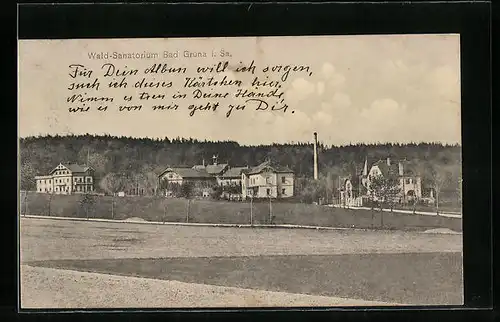 Wald-Sanatorium Bad Gruna i. Sa.
Für Dein Album will ich sorgen,
such ich dieses Kärtchen hier,
Nimm es treu in Deine Hände,
wie es von mir geht zu Dir.